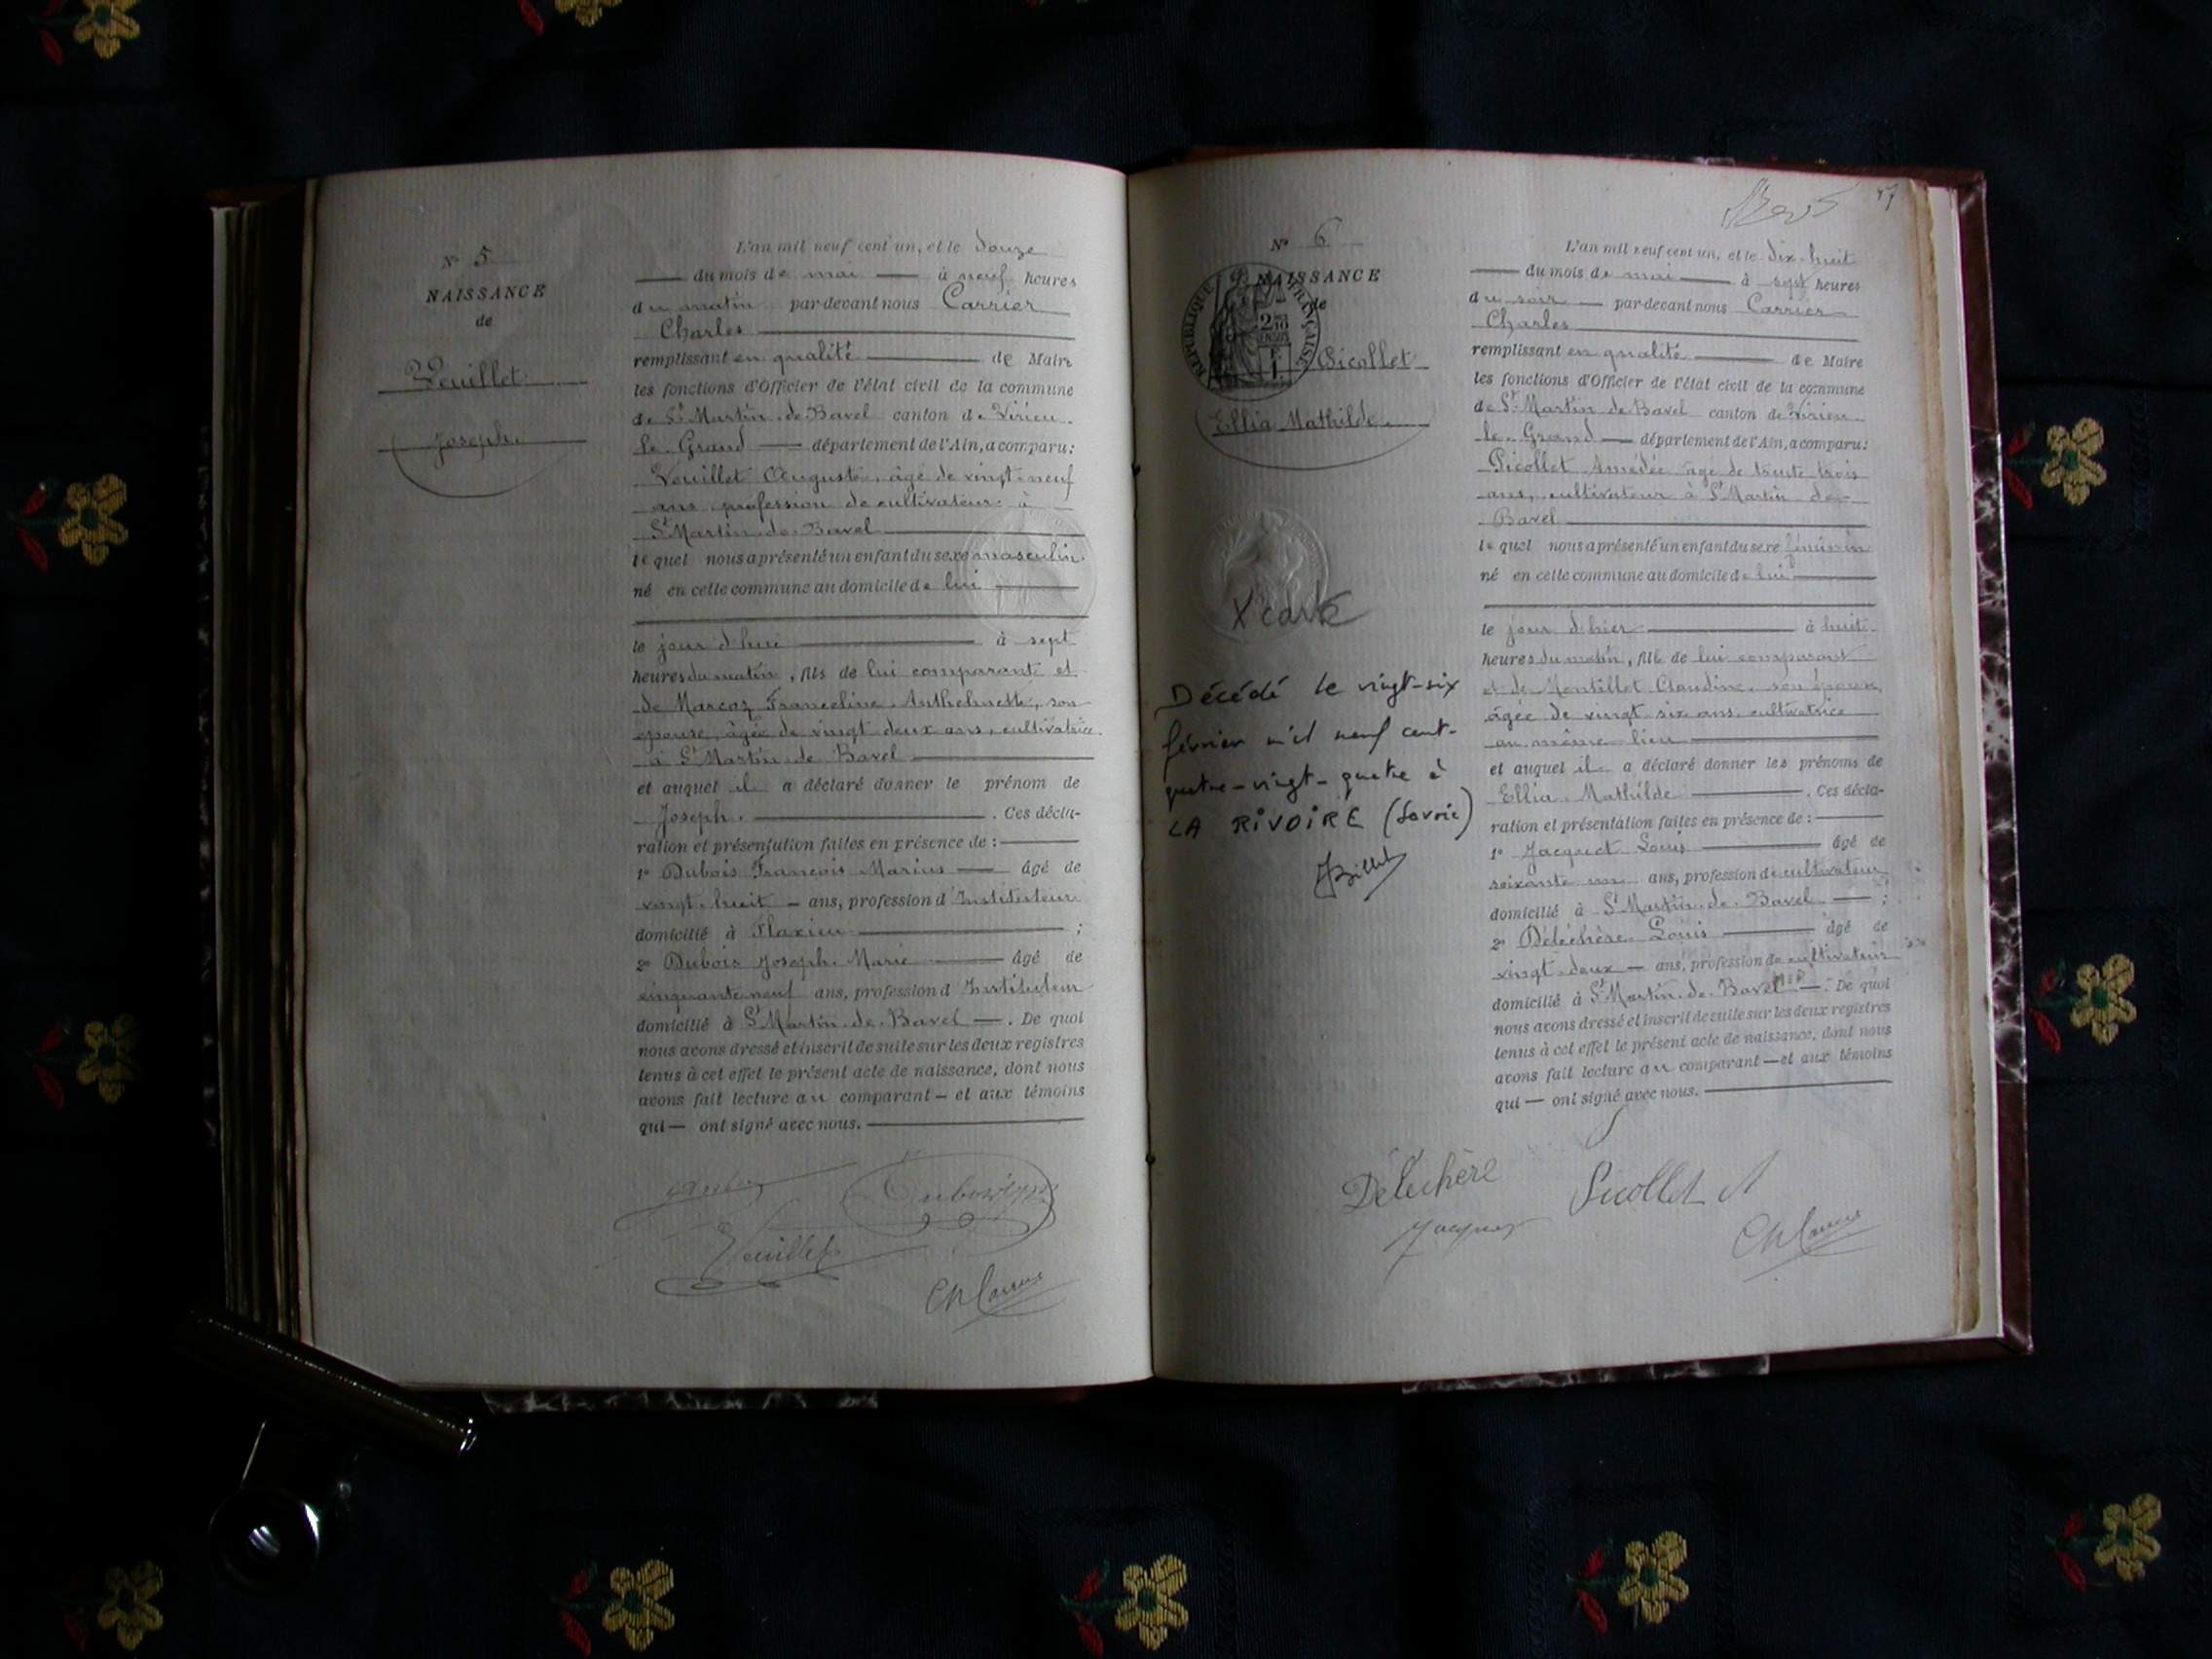 N° 5
NAISSANCE
de
Veuillet
Joseph.
L'an mil neuf cent un, et le douze
du mois de mai à neuf heures
du matin par-devant nous Carrier
Charles
remplissant en qualité de Maire
les fonctions d'Officier de l'état civil de la commune
de St Martin de Bavel canton de Virieu
le Grand département de l'Ain, a comparu :
Veuillet Auguste, âgé de vingt-neuf
ans profession de cultivateur à
St Martin de Bavel
le quel nous a présenté un enfant du sexe masculin
né en cette commune au domicile de lui
le jour d'hui à sept
heures du matin, fils de lui comparant et
de Marcoz Franceline Anthelmette, son
épouse, âgée de vingt deux ans, cultivatrice
à St Martin de Bavel
et auquel il a déclaré donner le prénom de
Joseph. . Ces décla-
ration et présentation faites en présence de :
1° Dubois François Marius âgé de
vingt-huit - ans, profession d'Instituteur
domicilié à Flaxieu ;
2° Dubois Joseph Marie âgé de
cinquante neuf ans, profession d'Instituteur
domicilié à St Martin de Bavel — . De quoi
nous avons dressé et inscrit de suite sur les deux registres
tenus à cet effet le présent acte de naissance, dont nous
avons fait lecture au comparant — et aux témoins
qui — ont signé avec nous.
Dubois
Veuillet
Ch Carrier
77
N° 6
NAISSANCE
de
RÉPUBLIQUE FRANÇAISE
Picollet
Ellia Mathilde.
Décédé le vingt-six
février mil neuf cent-
quatre-vingt-quatre à
LA RIVOIRE (Savoie)
JBillet
L'an mil neuf cent un, et le dix-huit
du mois de mai à sept heures
du soir — par-devant nous Carrier
Charles
remplissant en qualité de Maire
les fonctions d'Officier de l'état civil de la commune
de St Martin de Bavel canton de Virieu
le Grand — département de l'Ain, a comparu :
Picollet Amédée âgé de trente trois
ans, cultivateur à St Martin de
Bavel
le quel nous a présenté un enfant du sexe féminin
né en cette commune au domicile de lui
le jour d'hier à huit
heures du matin, fille de lui comparant
et de Montillet Claudine, son épouse,
âgée de vingt six ans, cultivatrice
au même lieu
et auquel il a déclaré donner les prénoms de
Ellia Mathilde . Ces décla-
ration et présentation faites en présence de :
1° Jacquet Louis âgé de
soixante un ans, profession de cultivateur
domicilié à St Martin de Bavel — ;
2° Déléchère Louis âgé de
vingt-deux — ans, profession de cultivateur
domicilié à St Martin de Bavel —. De quoi
nous avons dressé et inscrit de suite sur les deux registres
tenus à cet effet le présent acte de naissance, dont nous
avons fait lecture au comparant — et aux témoins
qui — ont signé avec nous.
Déléchère
Picollet A
Jacquet
Ch Carrier